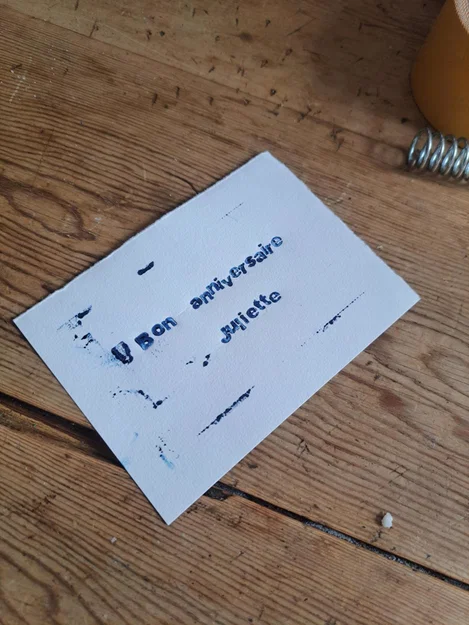 Bon anniversaire
Juliette